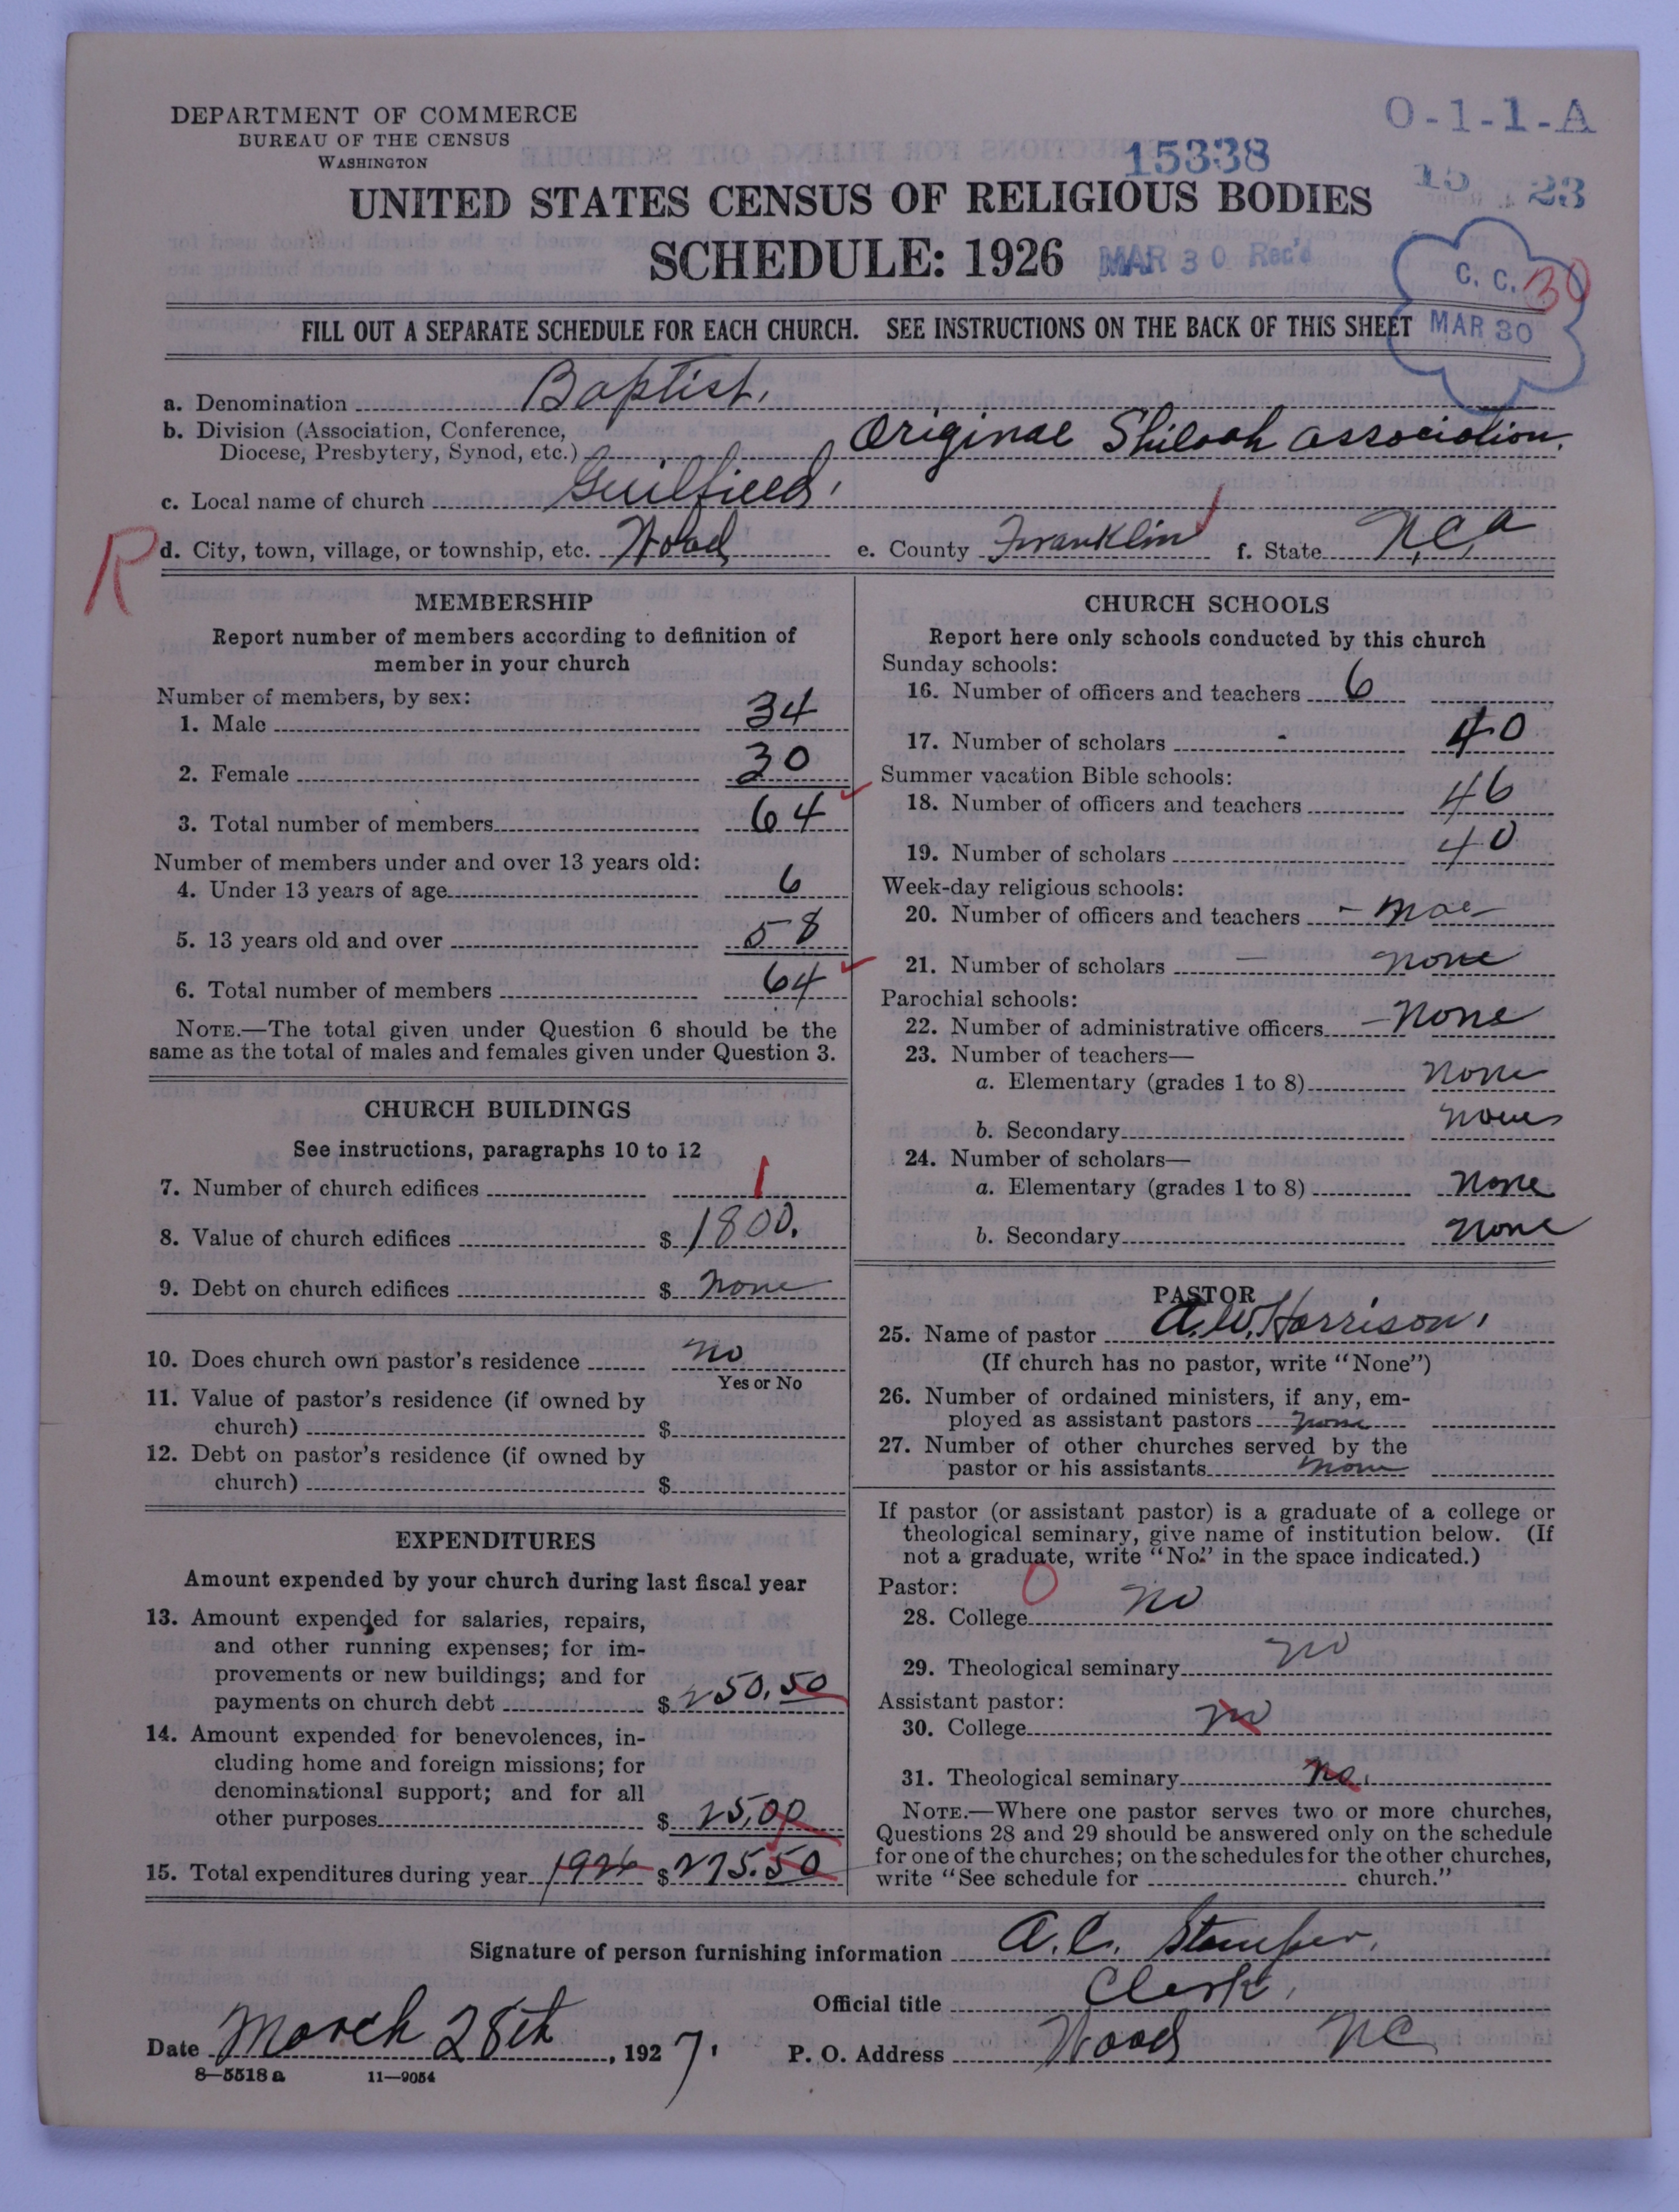 DEPARTMENT OF COMMERCE
BUREAU OF THE CENSUS
WASHINGTON
O-1-1-A
15338
15 23
UNITED STATES CENSUS OF RELIGIOUS BODIES
SCHEDULE: 1926
MAR 30 Rec'd
C. C. 30
MAR 30
FILL OUT A SEPARATE SCHEDULE FOR EACH CHURCH. SEE INSTRUCTIONS ON THE BACK OF THIS SHEET
a. Denomination Baptist.
b. Division (Association, Conference,
Diocese, Presbytery, Synod, etc.) Original Shiloah association.
c. Local name of church Guilfield.
R
d. City, town, village, or township, etc. Wood e. County Franklin f. State N.C.a
MEMBERSHIP
Report number of members according to definition of
member in your church
Number of members, by sex:
1. Male 34
2. Female 30
3. Total number of members 64
Number of members under and over 13 years old:
4. Under 13 years of age 6
5. 13 years old and over 58
6. Total number of members 64
NOTE.—The total given under Question 6 should be the
same as the total of males and females given under Question 3.
CHURCH BUILDINGS
See instructions, paragraphs 10 to 12
7. Number of church edifices 1
8. Value of church edifices $ 1800.
9. Debt on church edifices $ none
10. Does church own pastor's residence no
Yes or No
11. Value of pastor's residence (if owned by
church) $
12. Debt on pastor's residence (if owned by
church) $
EXPENDITURES
Amount expended by your church during last fiscal year
13. Amount expended for salaries, repairs,
and other running expenses; for im-
provements or new buildings; and for
payments on church debt $ 250.50
14. Amount expended for benevolences, in-
cluding home and foreign missions; for
denominational support; and for all
other purposes $ 25.00
15. Total expenditures during year 1926 $ 275.50
CHURCH SCHOOLS
Report here only schools conducted by this church
Sunday schools:
16. Number of officers and teachers 6
17. Number of scholars 40
Summer vacation Bible schools:
18. Number of officers and teachers 46
19. Number of scholars 40
Week-day religious schools:
20. Number of officers and teachers
21. Number of scholars none
Parochial schools:
22. Number of administrative officers none
23. Number of teachers—
a. Elementary (grades 1 to 8) none
b. Secondary none
24. Number of scholars—
a. Elementary (grades 1 to 8) none
b. Secondary none
PASTOR
25. Name of pastor A.W. Harrison.
(If church has no pastor, write "None")
26. Number of ordained ministers, if any, em-
ployed as assistant pastors none
27. Number of other churches served by the
pastor or his assistants none
If pastor (or assistant pastor) is a graduate of a college or
theological seminary, give name of institution below. (If
not a graduate, write "No" in the space indicated.)
Pastor: 0
28. College no
29. Theological seminary no
Assistant pastor:
30. College no
31. Theological seminary no.
NOTE.—Where one pastor serves two or more churches,
Questions 28 and 29 should be answered only on the schedule
for one of the churches; on the schedules for the other churches,
write "See schedule for church."
Signature of person furnishing information A.C. Stamper.
Official title Clerk,
Date March 28th, 1927. P. O. Address Wood NC
8—5518 a 11—9054